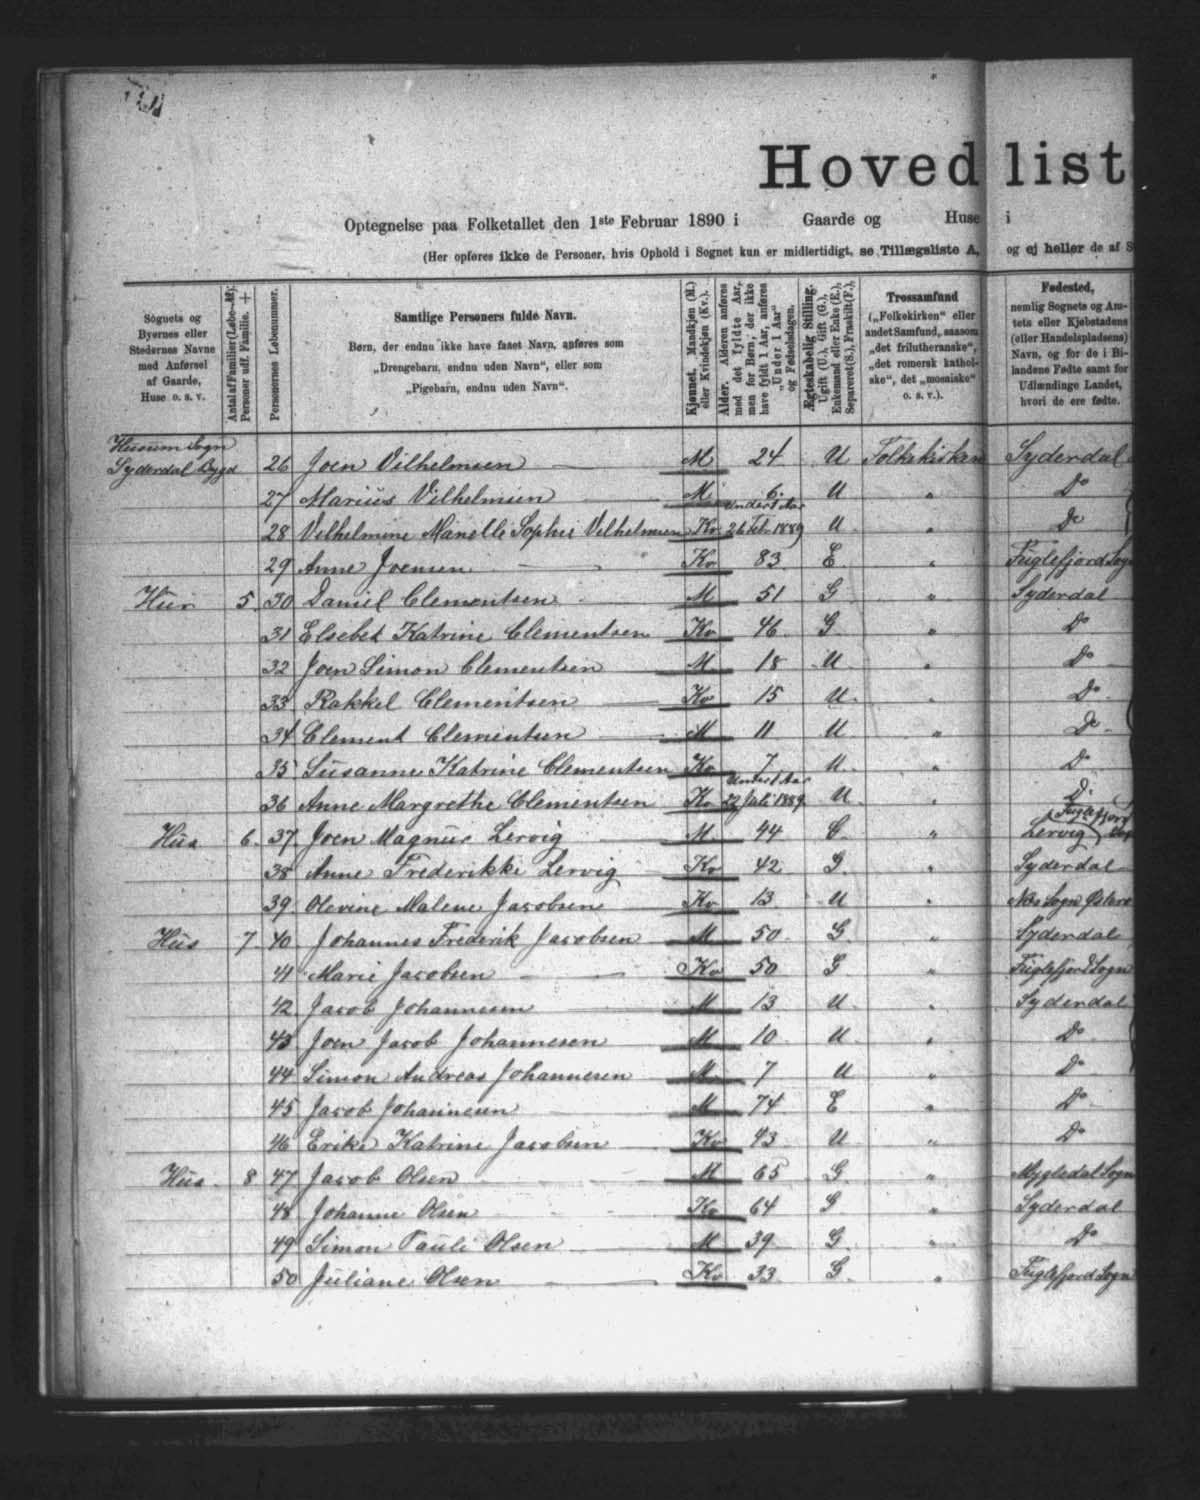 Hovedlist
Optegnelse paa Folketallet den 1ste Februar 1890 i Gaarde og Huse i
(Her opføres ikke de Personer, hvis Ophold i Sognet kun er midlertidigt, se Tillægsliste A, og ej heller de af S
Sognets og Byernes eller Stedernes Navne med Anførsel af Gaarde, Huse o. s. v.
Personernes Løbenummer.
Samtlige Personers fulde Navn.
Børn, der endnu ikke have faaet Navn, anføres som
„Drengebarn, endnu uden Navn“, eller som
„Pigebarn, endnu uden Navn“.
Kjønnet. Mandkjøn (M.) eller Kvindekjøn (Kv.).
Alder. Alderen anføres med det fyldte Aar, men for Børn, der ikke have fyldt 1 Aar, anføres „Under 1 Aar“ og Fødselsdagen.
Ægteskabelig Stilling. Ugift (U.), Gift (G.), Enkemand eller Enke (E.), Separeret (S.), Fraskilt (F.).
Trossamfund („Folkekirken“ eller andet Samfund, saasom „det frilutheranske“, „det romersk katholske“, det „mosaiske“ o. s. v.).
Fødested, nemlig Sognets og Amtets eller Kjøbstadens (eller Handelspladsens) Navn, og for de i Bilandene Fødte samt for Udlændinge Landet, hvori de ere fødte.
Husum Sogn
Syderdal Bygd 26 Joen Vilhelmsen M 24 U Folkekirken Syderdal
27 Marius Vilhelmsen M 6 U " Do
28 Vilhelmine Sophie Vilhelmsen Kv Under 1 Aar 26 Feb. 1889 U " Do
29 Anne Joensen Kv 83 E " Fuglefjord Sogn
Hus 5 30 Daniel Clementsen M 51 G " Syderdal
31 Elsebet Katrine Clementsen Kv 46 G " Do
32 Joen Simon Clementsen M 18 U " Do
33 Rakkel Clementsen Kv 15 U " Do
34 Clement Clementsen M 11 U " Do
35 Susanne Katrine Clementsen Kv 7 U " Do
36 Anne Margrethe Clementsen Kv Under 1 Aar 22 Juli 1889 U " Do
Hus 6 37 Joen Magnus Lervig M 44 G " Lervig Fuglefjord
38 Anne Frederikke Lervig Kv 42 G " Syderdal
39 Olevine Malene Jacobsen Kv 13 U " Nes Sogn
Hus 7 40 Johannes Frederik Jacobsen M 50 G " Syderdal
41 Marie Jacobsen Kv 50 G " Fuglefjord Sogn
42 Jacob Johannesen M 13 U " Syderdal
43 Joen Jacob Johannesen M 10 U " Do
44 Simon Andreas Johannesen M 7 U " Do
45 Jacob Johannesen M 74 E " Do
46 Erike Katrine Jacobsen Kv 43 U " Do
Hus 8 47 Jacob Olsen M 65 G " Mygledal Sogn
48 Johanne Olsen Kv 64 G " Syderdal
49 Simon Pauli Olsen M 39 G " Do
50 Juliane Olsen Kv 33 G " Fuglefjord Sogn